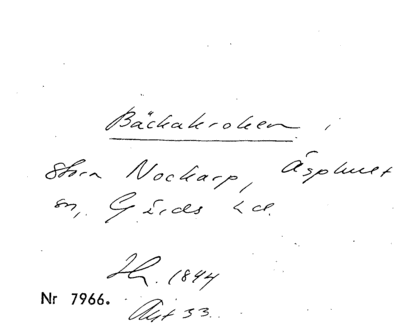 Bäckakroken,
Stora Nockarp, Äsphult
sn, Gärds hd.
Hr. 1844
Nr 7966.
Akt 33.